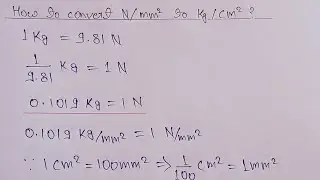 How to convert N/mm² to Kg/cm²?
1 Kg = 9.81 N
1/9.81 Kg = 1 N
0.1019 Kg = 1 N
0.1019 Kg/mm² = 1 N/mm²
∵ 1 cm² = 100mm² ⇒ 1/100 cm² = 1mm²